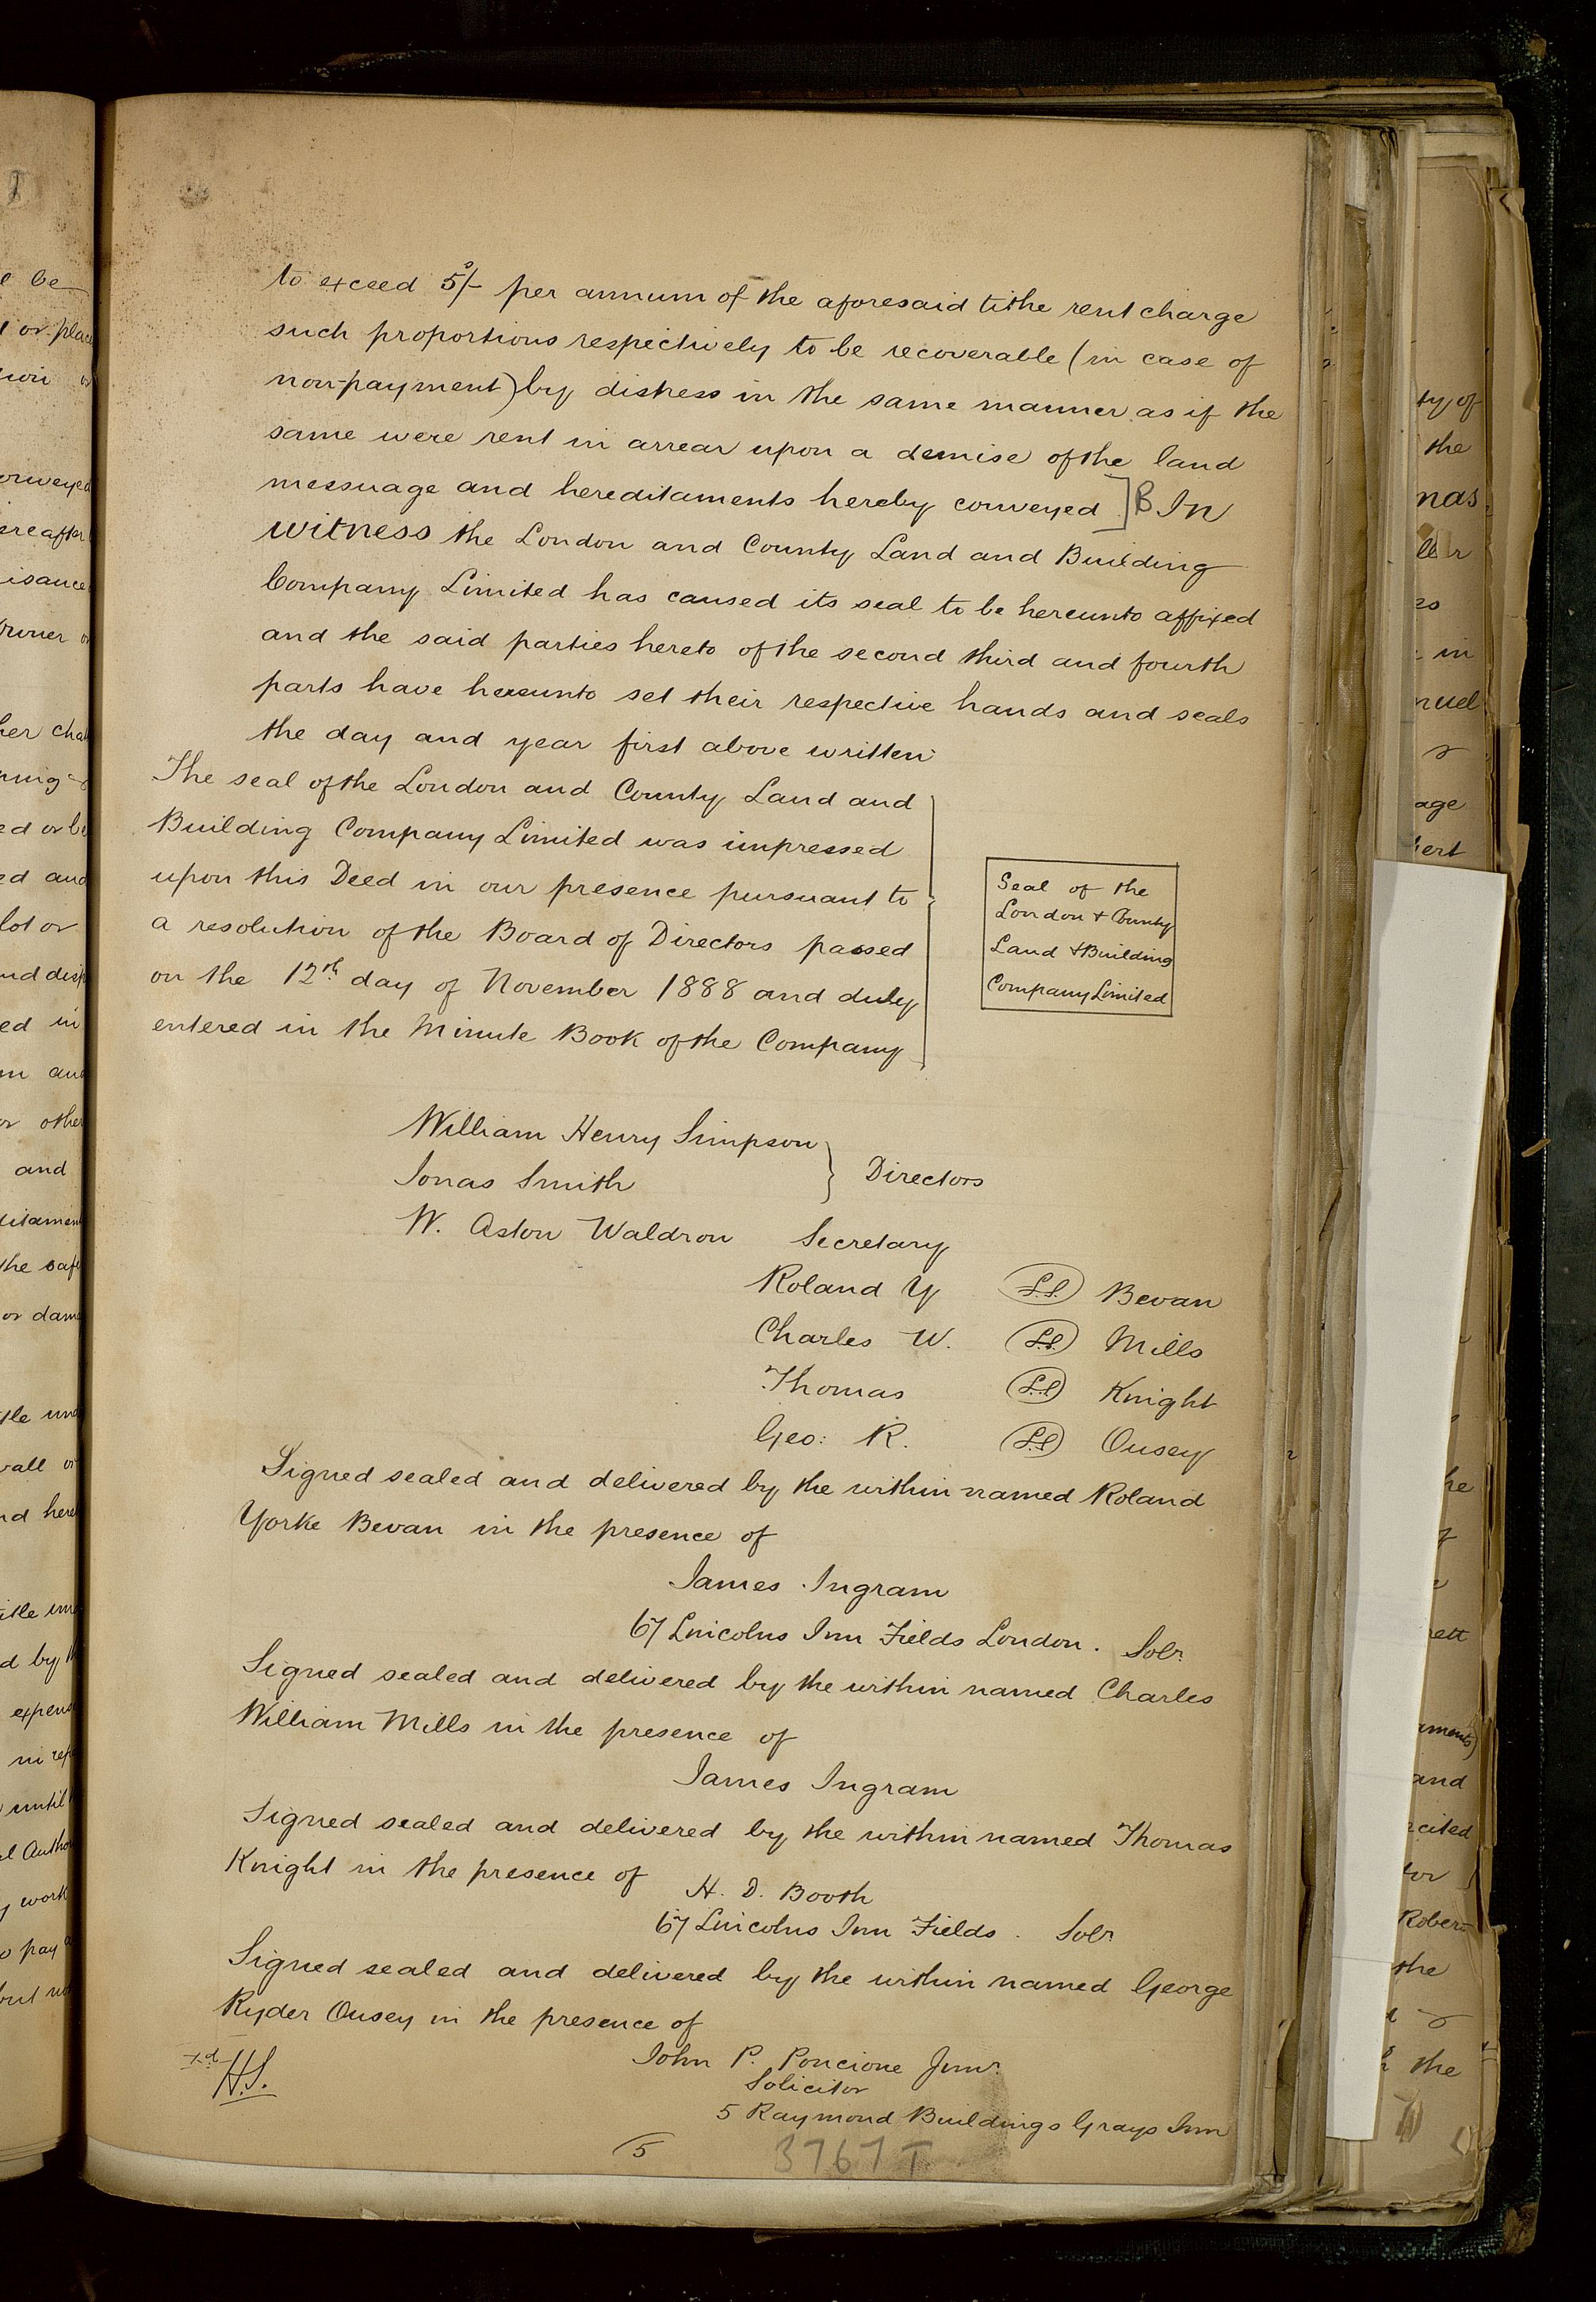 to exceed 5/- per annum of the aforesaid tithe rent charge
such proportions respectively to be recoverable (in case of
non-payment) by distress in the same manner as if the
same were rent in arrear upon a demise of the land
messuage and hereditaments hereby conveyed ] B In
witness the London and County Land and Building
Company Limited has caused its seal to be hereunto affixed
and the said parties hereto of the second third and fourth
parts have hereunto set their respective hands and seals
the day and year first above written
The seal of the London and County Land and
Building Company Limited was impressed
upon this Deed in our presence pursuant to
a resolution of the Board of Directors passed
on the 12th day of November 1888 and duly
entered in the Minute Book of the Company
Seal of the
London & County
Land & Building
Company Limited
William Henry Simpson
Jonas Smith
Directors
W. Aston Waldron Secretary
Roland Y L.S. Bevan
Charles W. L.S. Mills
Thomas L.S. Knight
Geo: R. L.S. Ousey
Signed sealed and delivered by the within named Roland
Yorke Bevan in the presence of
James Ingram
67 Lincolns Inn Fields London. Solr.
Signed sealed and delivered by the within named Charles
William Mills in the presence of
James Ingram
Signed sealed and delivered by the within named Thomas
Knight in the presence of
H. D. Booth
67 Lincolns Inn Fields. Solr.
Signed sealed and delivered by the within named George
Ryder Ousey in the presence of
John P. Poncione Junr.
Solicitor
5 Raymond Buildings Grays Inn
Xd
H.S.
5
3767 T